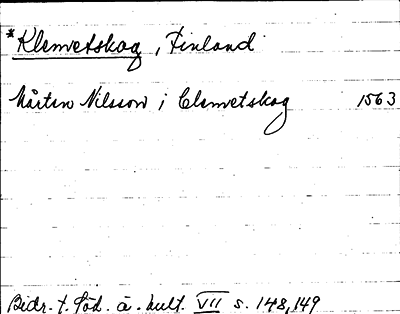 *Klemetskog, Finland
Mårten Nilsson i Clemetskog 1563
Bidr. t. söd. ö. kult. VII s. 148, 149